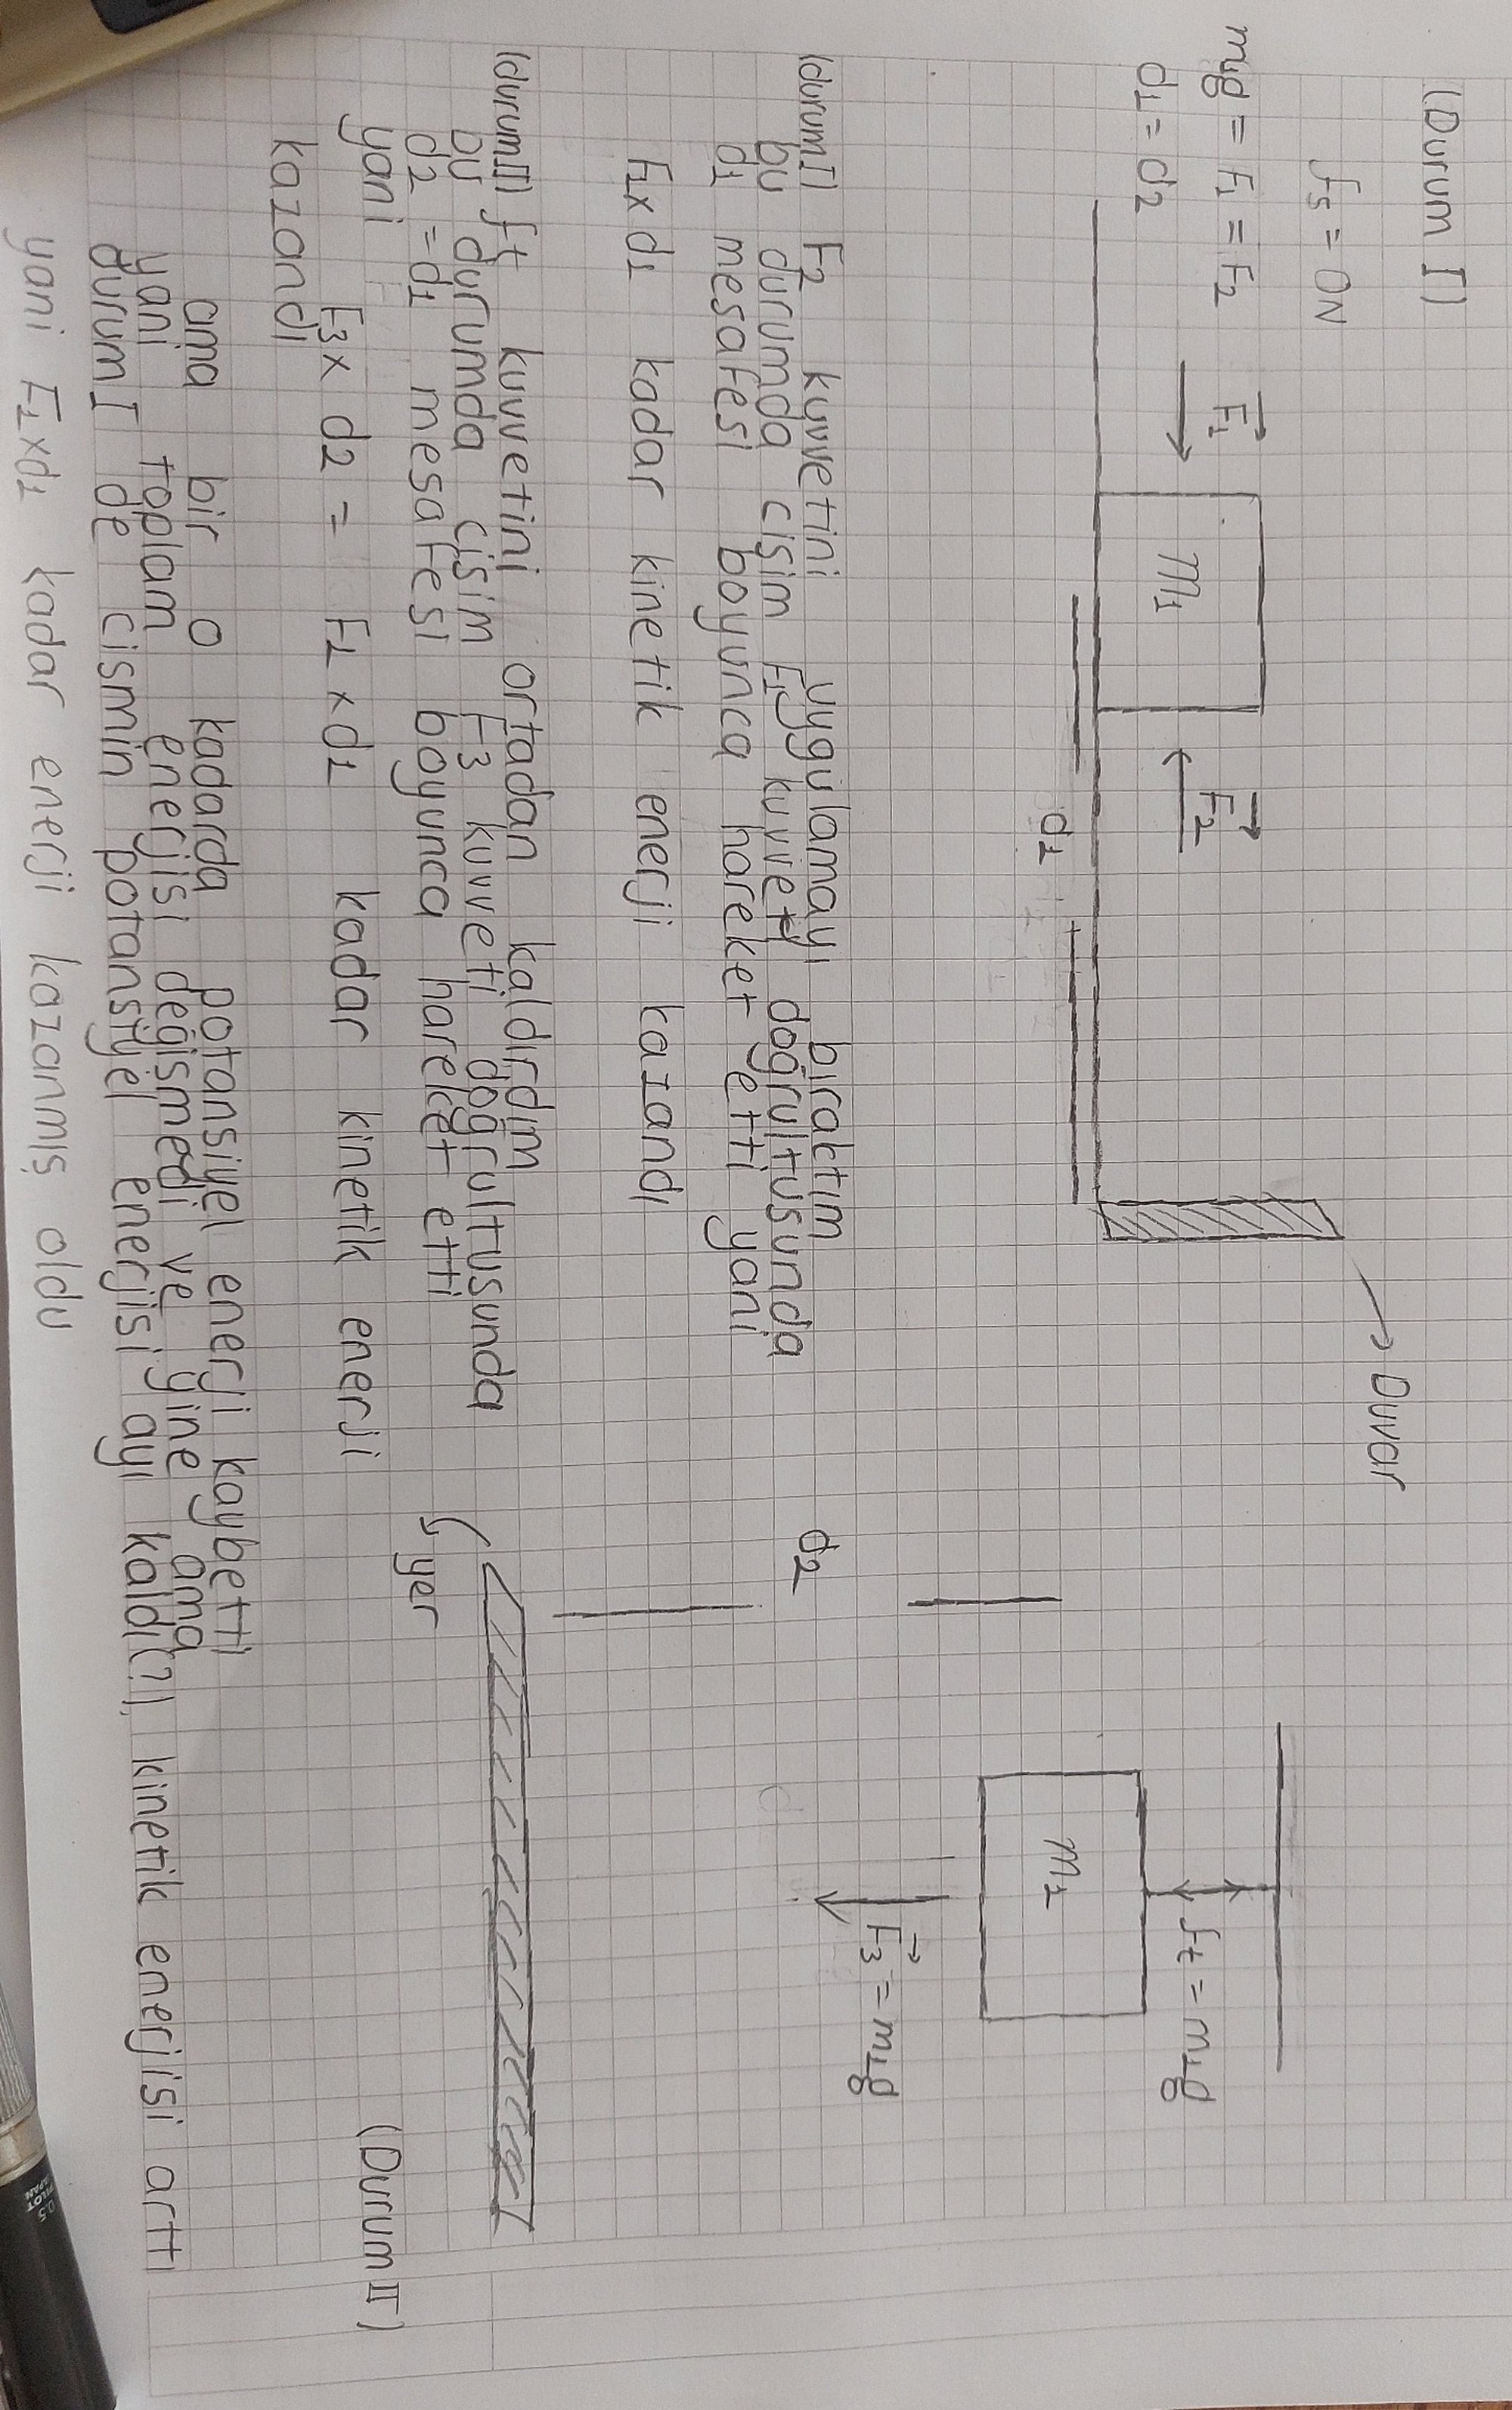 (Durum I)
fs = 0N
m₁g = F₁ = F₂
d₁ = d₂
F₁
m₁
F₂
d₁
Duvar
ft = m₁g
m₁
F₃ = m₁g
d₂
yer
(Durum II)
(durumI) F₂ kuvvetini uygulamayı bıraktım
bu durumda cisim F₁ kuvveti doğrultusunda
d₁ mesafesi boyunca hareket etti yani
F₁ x d₁ kadar kinetik enerji kazandı
(durumII) ft kuvvetini ortadan kaldırdım
bu durumda cisim F₃ kuvveti doğrultusunda
d₂ = d₁ mesafesi boyunca hareket etti
yani F₃ x d₂ = F₁ x d₁ kadar kinetik enerji
kazandı
ama bir o kadarda potansiyel enerji kaybetti
yani toplam enerjisi değişmedi ve yine ama
durum I de cismin potansiyel enerjisi ayı kaldı(?), kinetik enerjisi arttı
yani F₁ x d₁ kadar enerji kazanmış oldu
0.5
PILOT
JAPAN